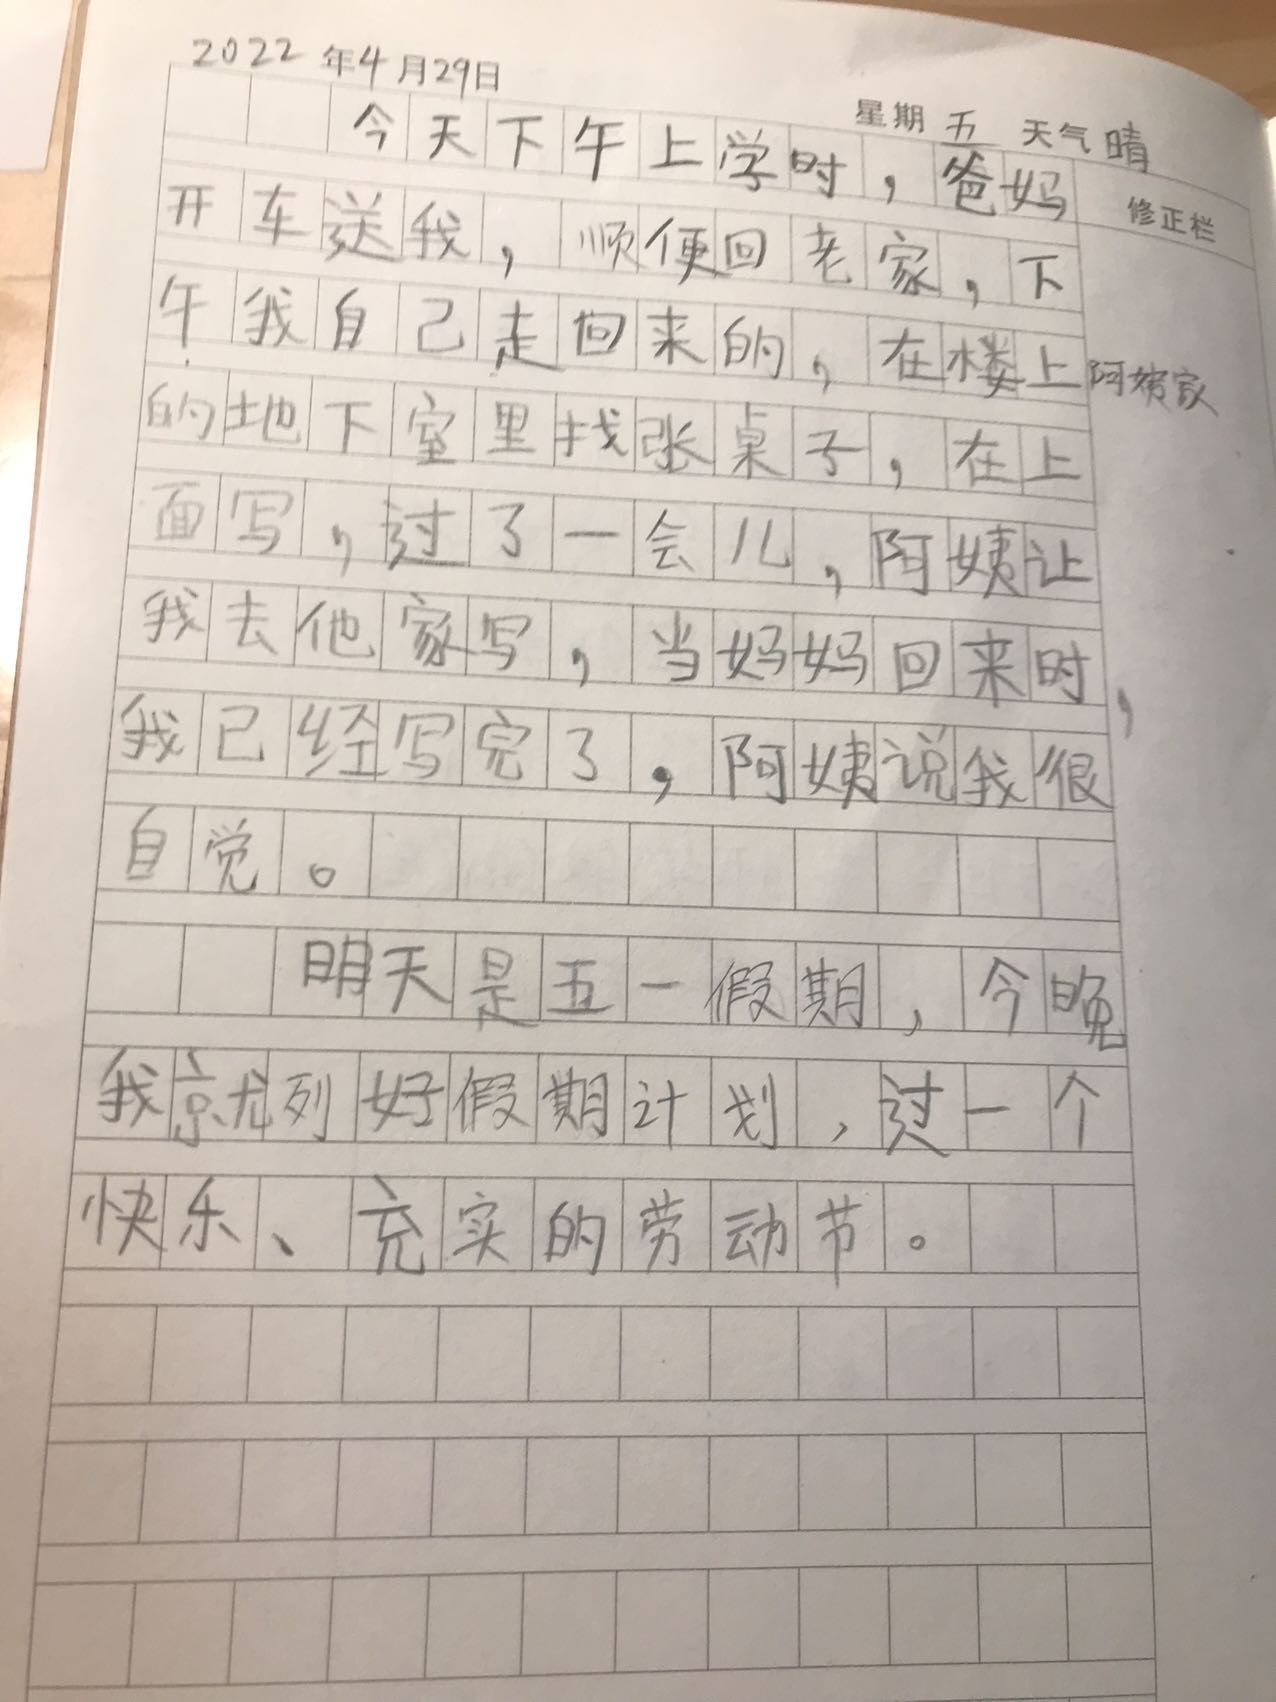 2022年4月29日
星期五 天气晴
今天下午上学时，爸妈
修正栏
开车送我，顺便回老家，下
午我自己走回来的，在楼上阿姨家
的地下室里找张桌子，在上
面写，过了一会儿，阿姨让
我去他家写，当妈妈回来时，
我已经写完了，阿姨说我很
自觉。
明天是五一假期，今晚
我就列好假期计划，过一个
快乐、充实的劳动节。